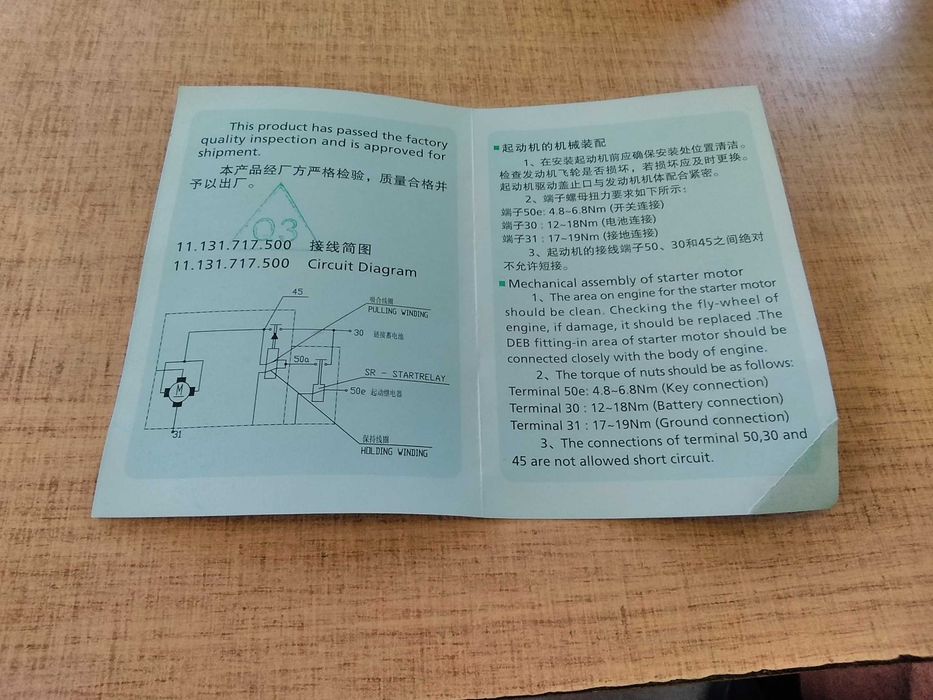 This product has passed the factory
quality inspection and is approved for
shipment.
本产品经厂方严格检验，质量合格并
予以出厂。
03
11.131.717.500 接线简图
11.131.717.500 Circuit Diagram
45
吸合线圈
PULLING WINDING
30 链接蓄电池
50a
SR - STARTRELAY
50e 起动继电器
M
31
保持线圈
HOLDING WINDING
起动机的机械装配
1、在安装起动机前应确保安装处位置清洁。
检查发动机飞轮是否损坏，若损坏应及时更换。
起动机驱动盖止口与发动机机体配合紧密。
2、端子螺母扭力要求如下所示：
端子50e: 4.8~6.8Nm (开关连接)
端子30 : 12~18Nm (电池连接)
端子31 : 17~19Nm (接地连接)
3、起动机的接线端子50、30和45之间绝对
不允许短接。
Mechanical assembly of starter motor
1、The area on engine for the starter motor
should be clean. Checking the fly-wheel of
engine, if damage, it should be replaced .The
DEB fitting-in area of starter motor should be
connected closely with the body of engine.
2、The torque of nuts should be as follows:
Terminal 50e: 4.8~6.8Nm (Key connection)
Terminal 30 : 12~18Nm (Battery connection)
Terminal 31 : 17~19Nm (Ground connection)
3、The connections of terminal 50,30 and
45 are not allowed short circuit.